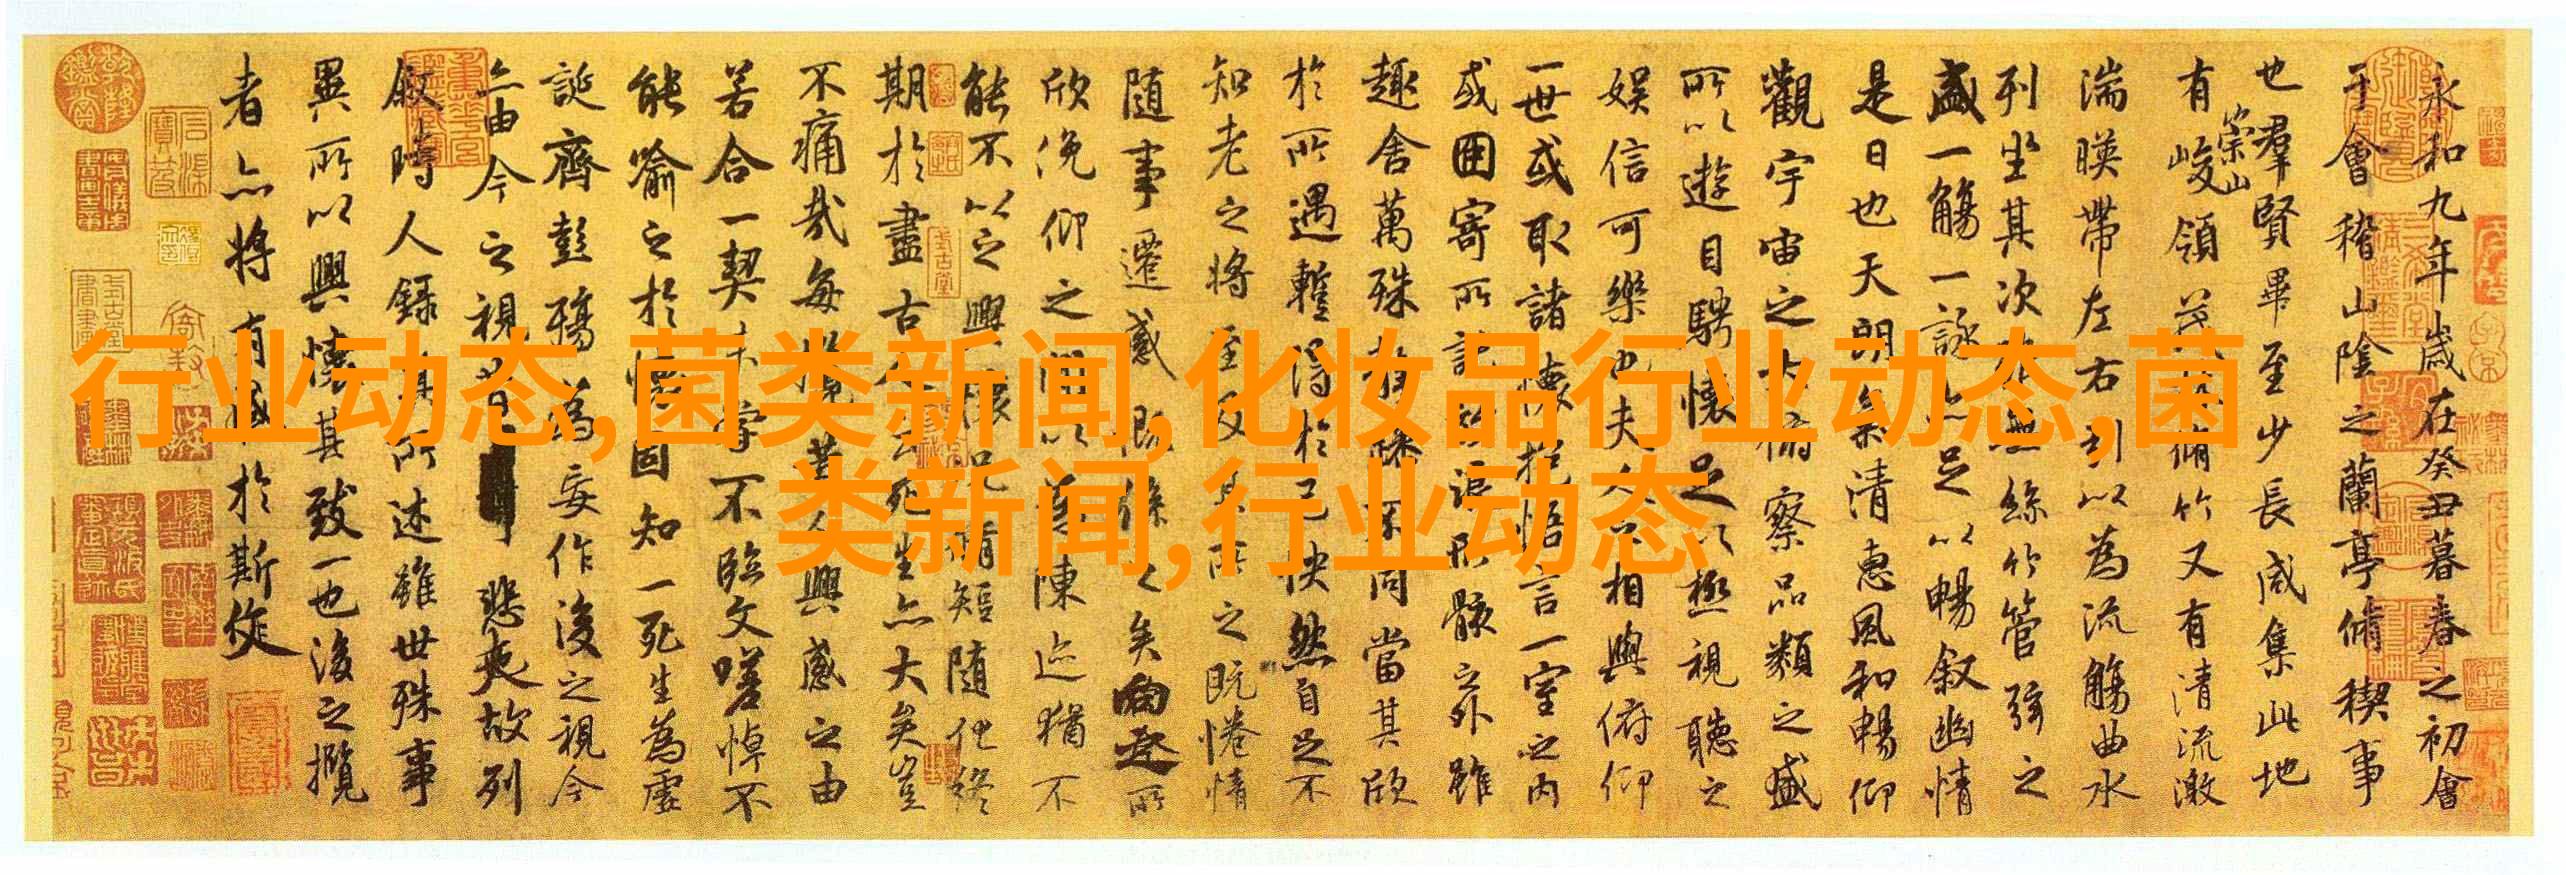 行业动态,菌类新闻,化妆品行业动态,菌
类新闻,行业动态
永和九年歲在癸丑暮春之初會
于會稽山陰之蘭亭脩稧事
也羣賢畢至少長咸集此地
有崇山峻領茂脩竹又有清流激
湍暎帶左右引以為流觴曲水
列坐其次無絲竹管弦之
盛一觴一詠亦足以暢叙幽情
是日也天朗氣清惠風和暢仰
觀宇宙之大俯察品類之盛
所以遊目騁懷足以極視聽之
娛信可樂也夫人相與俯仰
一世或取諸懷抱悟言一室之內
或因寄所託浪骸之外雖
趣舍萬殊不同當其欣
於所遇蹔得於己怏然自足不
知老之將至及其所之既惓情
隨事遷感係之矣向之所
欣俛仰之以為陳迹猶不
能不以之興懷況脩短隨化終
期於盡古人云死生亦大矣豈
不痛哉每攬昔人興感之由
若合一契未嘗不臨文嗟悼不
能喻之於懷固知一死生為虛
誕齊彭殤為妄作後之視今
亦由今之視昔悲夫故列
叙時人錄其所述雖世殊事
異所以興懷其致一也後之攬
者亦將有感於斯文